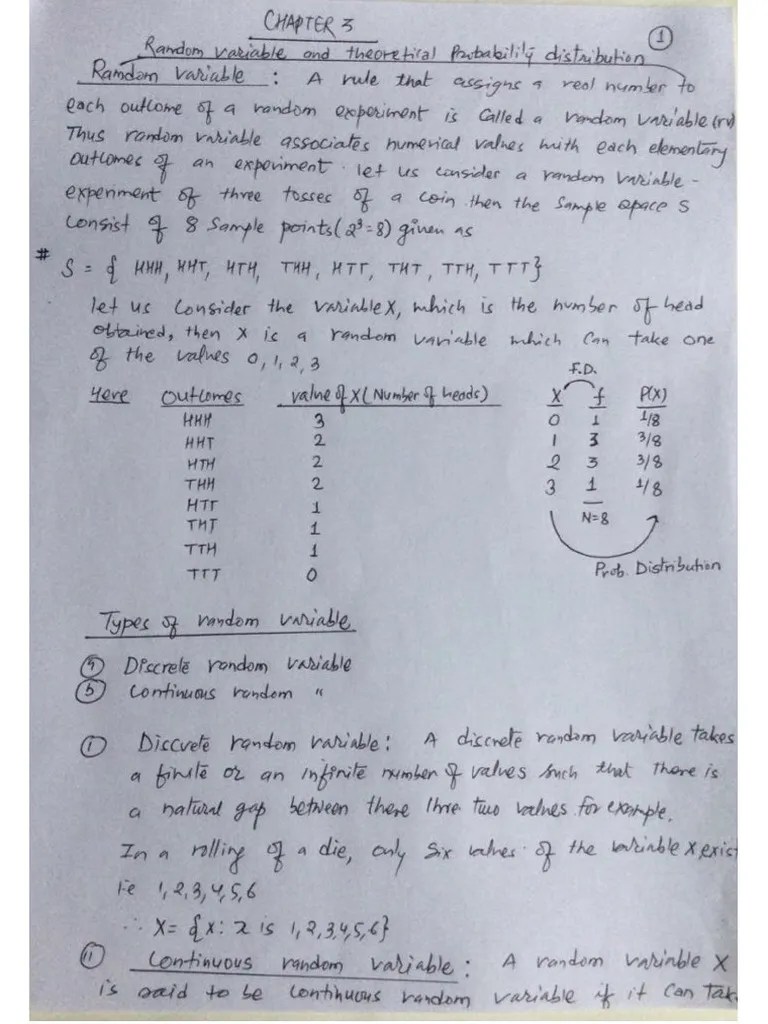 CHAPTER 3
①
Random variable and theoretical Probability distribution
Random variable : A rule that assigns a real number to
each outcome of a random experiment is called a random variable (rv)
Thus random variable associates numerical values with each elementary
outcomes of an experiment. let us consider a random variable -
experiment of three tosses of a coin then the sample space S
consist of 8 sample points (2³=8) given as
# S = { HHH, HHT, HTH, THH, HTT, THT, TTH, TTT}
let us consider the variable X, which is the number of head
obtained, then X is a random variable which can take one
of the values 0, 1, 2, 3
F.D.
Here Outcomes value of X (Number of heads) X f P(X)
HHH 3 0 1 1/8
HHT 2 1 3 3/8
HTH 2 2 3 3/8
THH 2 3 1 1/8
HTT 1
N=8
THT 1
TTH 1
Prob. Distribution
TTT 0
Types of random variable
Discrete random variable
ⓑ Continuous random "
① Discrete random variable : A discrete random variable takes
a finite or an infinite number of values such that there is
a natural gap between there two values for example.
In a rolling of a die, only six values of the variable X exist
i.e 1, 2, 3, 4, 5, 6
∴ X = {x : x is 1, 2, 3, 4, 5, 6}
⑪ Continuous random variable : A random variable X
is said to be continuous random variable if it can tak